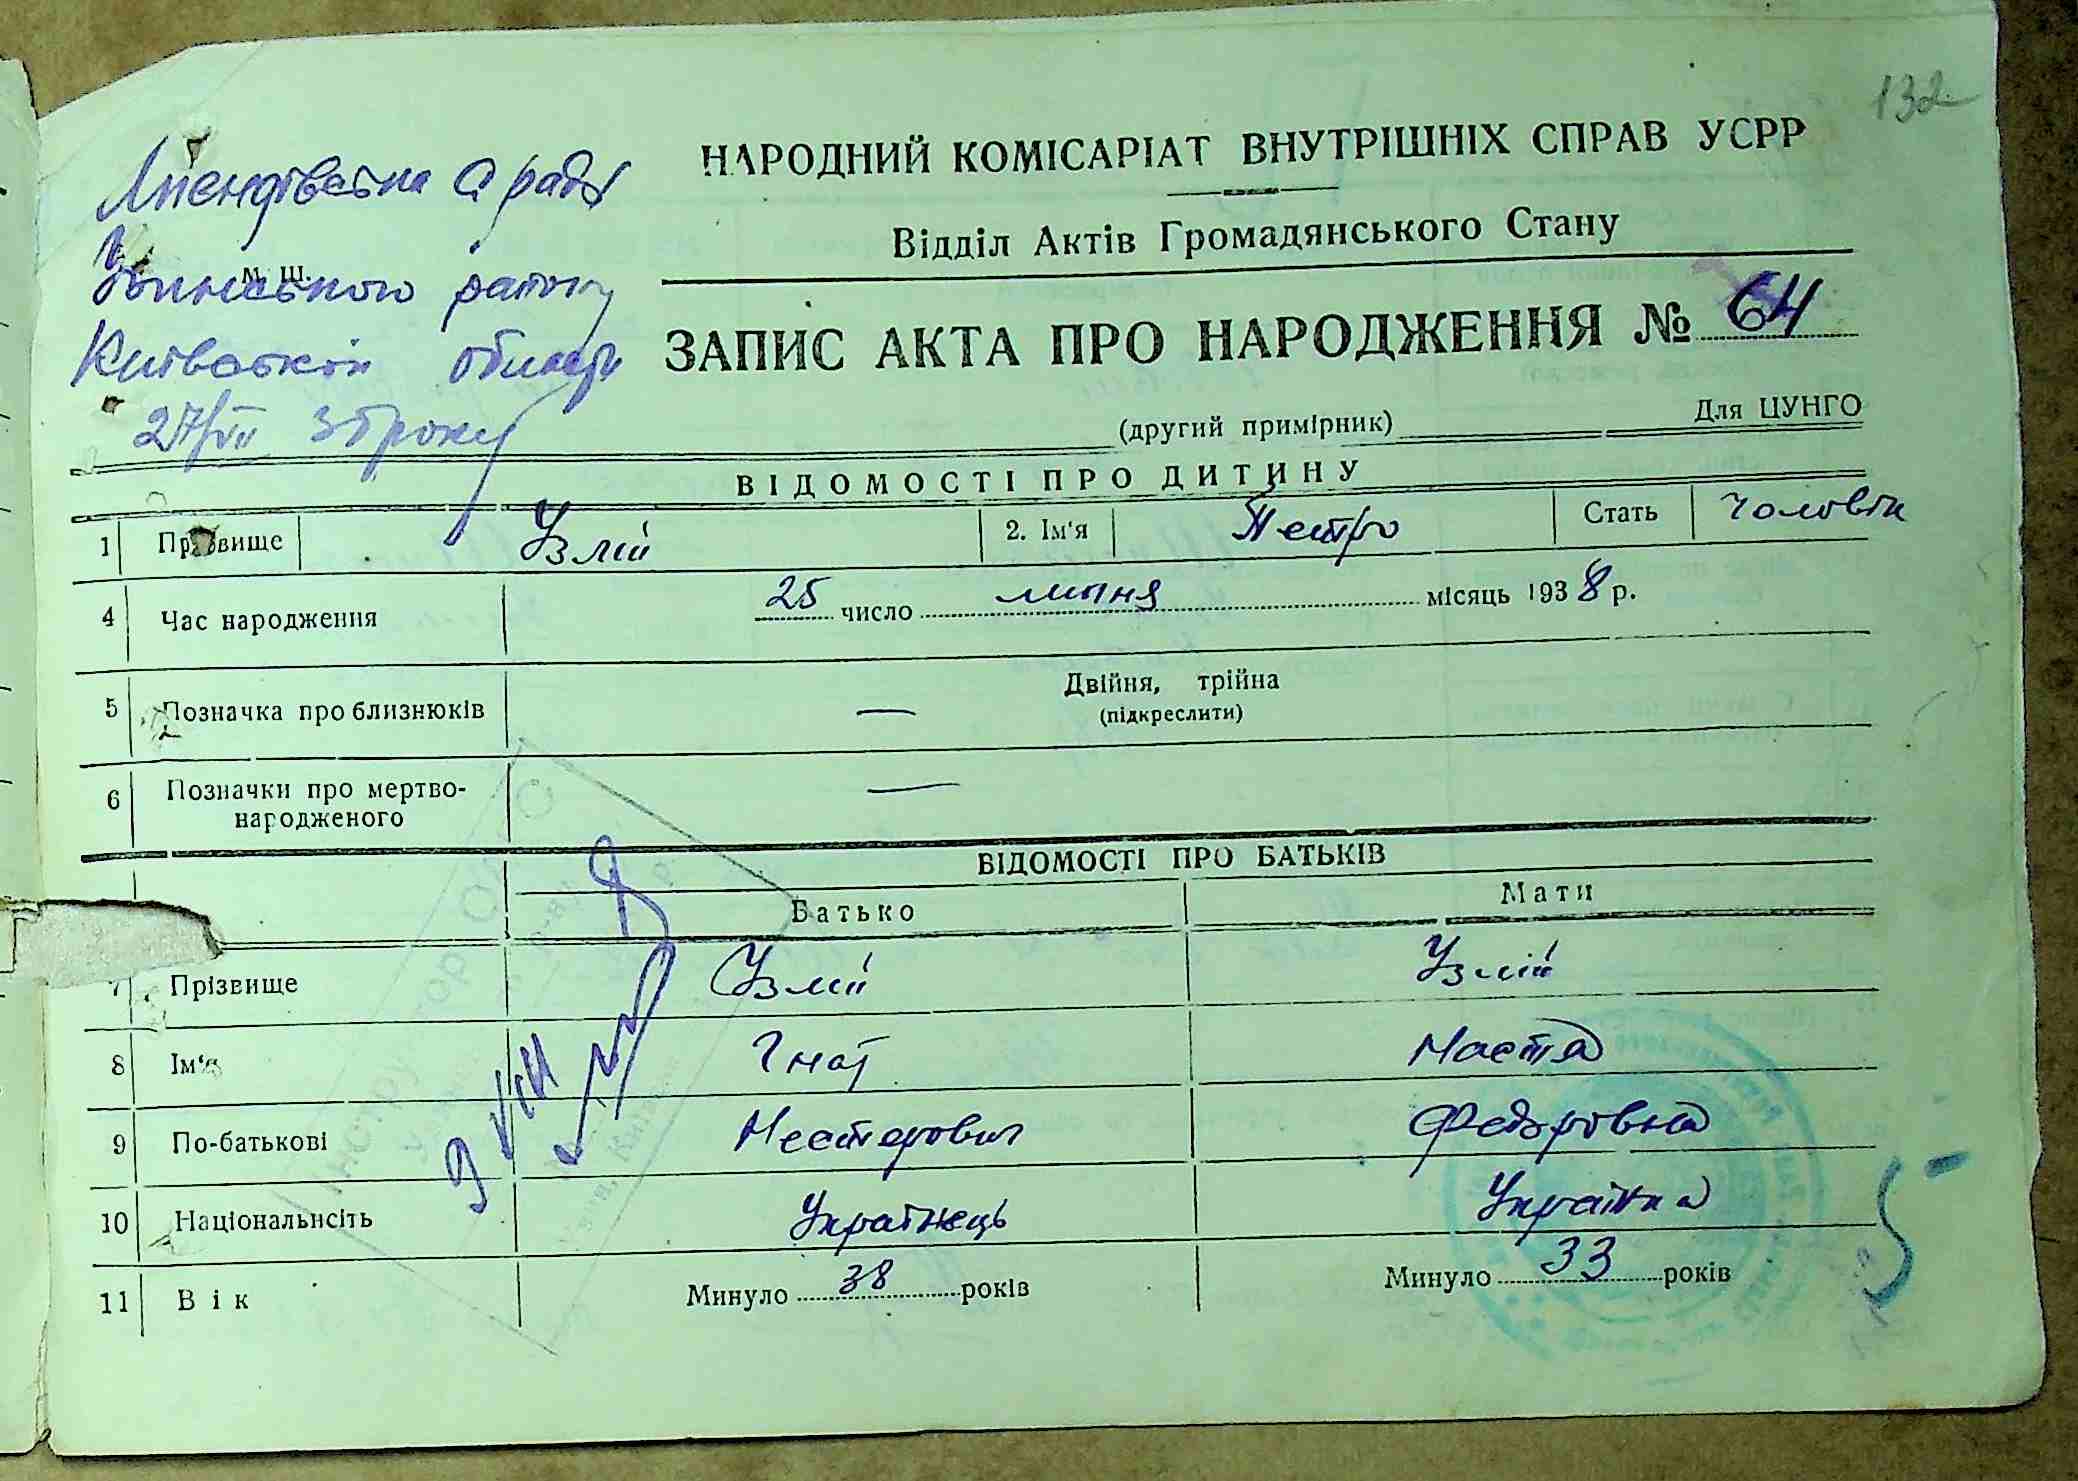 132
НАРОДНИЙ КОМІСАРІАТ ВНУТРІШНІХ СПРАВ УСРР
Відділ Актів Громадянського Стану
с ради
м. ш.
району
Київської області
27/VII 38 року
ЗАПИС АКТА ПРО НАРОДЖЕННЯ № 64
(другий примірник) Для ЦУНГО
ВІДОМОСТІ ПРО ДИТИНУ
1 Прізвище Узлій 2. Ім'я Петро Стать чоловік
4 Час народження 25 число липня місяць 1938 р.
5 Позначка про близнюків — Двійня, трійна
(підкреслити)
6 Позначки про мертво-
народженого —
ВІДОМОСТІ ПРО БАТЬКІВ
Батько Мати
7 Прізвище Узлій Узлій
8 Ім'я Гнат Настя
9 По-батькові Несторович Федоровна
10 Національність Українець Українка
11 Вік Минуло 38 років Минуло 33 років
9 VIII
5